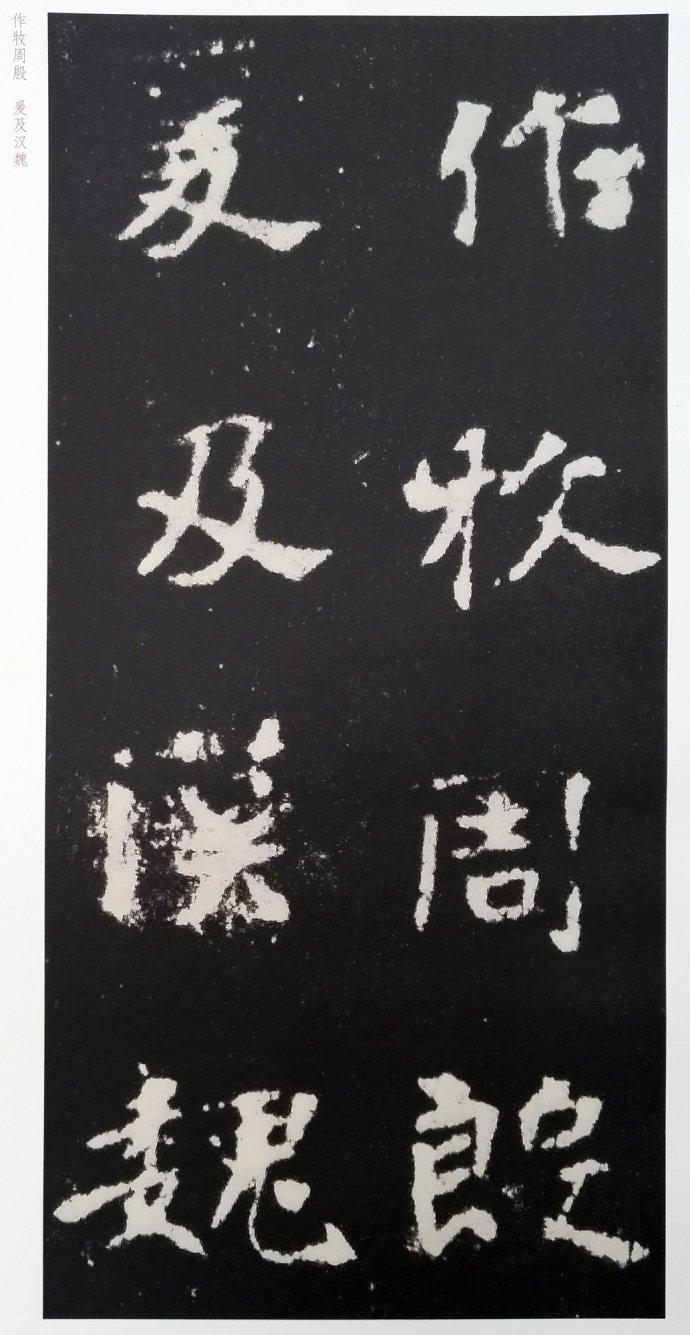 作牧周殷 爰及汉魏
作牧周殷
爰及漢魏